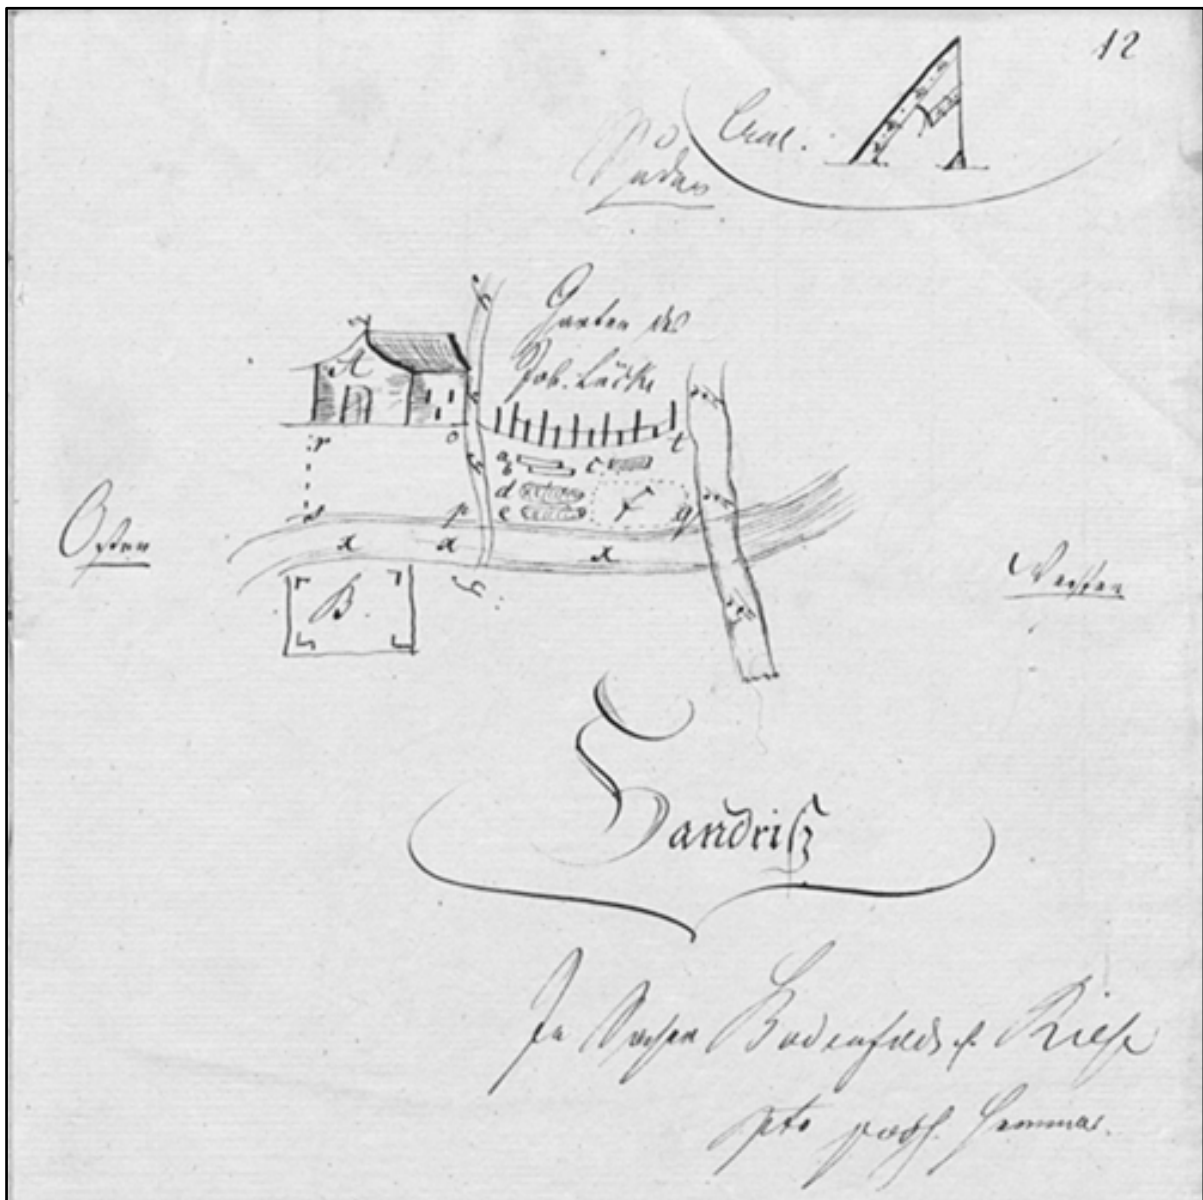 12
Süden
Garten des
Joh. Lücke
A
r
o
t
a
b
c.
d
e
p
q
x
x
x
y
Osten
Westen
B.
Handriß
In Sachen Bodenfeld c. Riese
pto poss. summar.